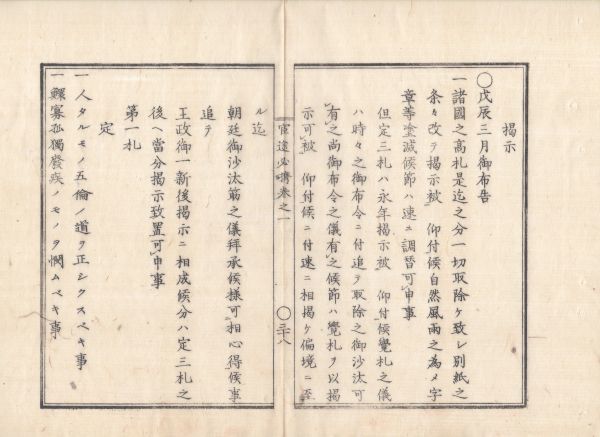 掲示
〇戊辰三月御布告
一諸國之高札是迄之分一切取除ケ致シ別紙之
条々改テ掲示被 仰付候自然風雨之為メ字
章等塗滅候節ハ速ニ調替可申事
但定三札ハ永年掲示被 仰付候覺札之儀
ハ時々之御布令ニ付追テ取除之御沙汰可
有之尚御布令之儀有之候節ハ覺札ヲ以掲
示可被 仰付候ニ付速ニ相掲ケ偏境ニ至
官途必携巻之一
〇三十八
ル迄
朝廷御沙汰筋之儀拜承候様可相心得候事
追テ
王政御一新後掲示ニ相成候分ハ定三札之
後ヘ當分掲示致置可申事
第一札
定
一人タルモノ五倫ノ道ヲ正シクスベキ事
一鰥寡孤獨廢疾ノモノヲ憫ムベキ事